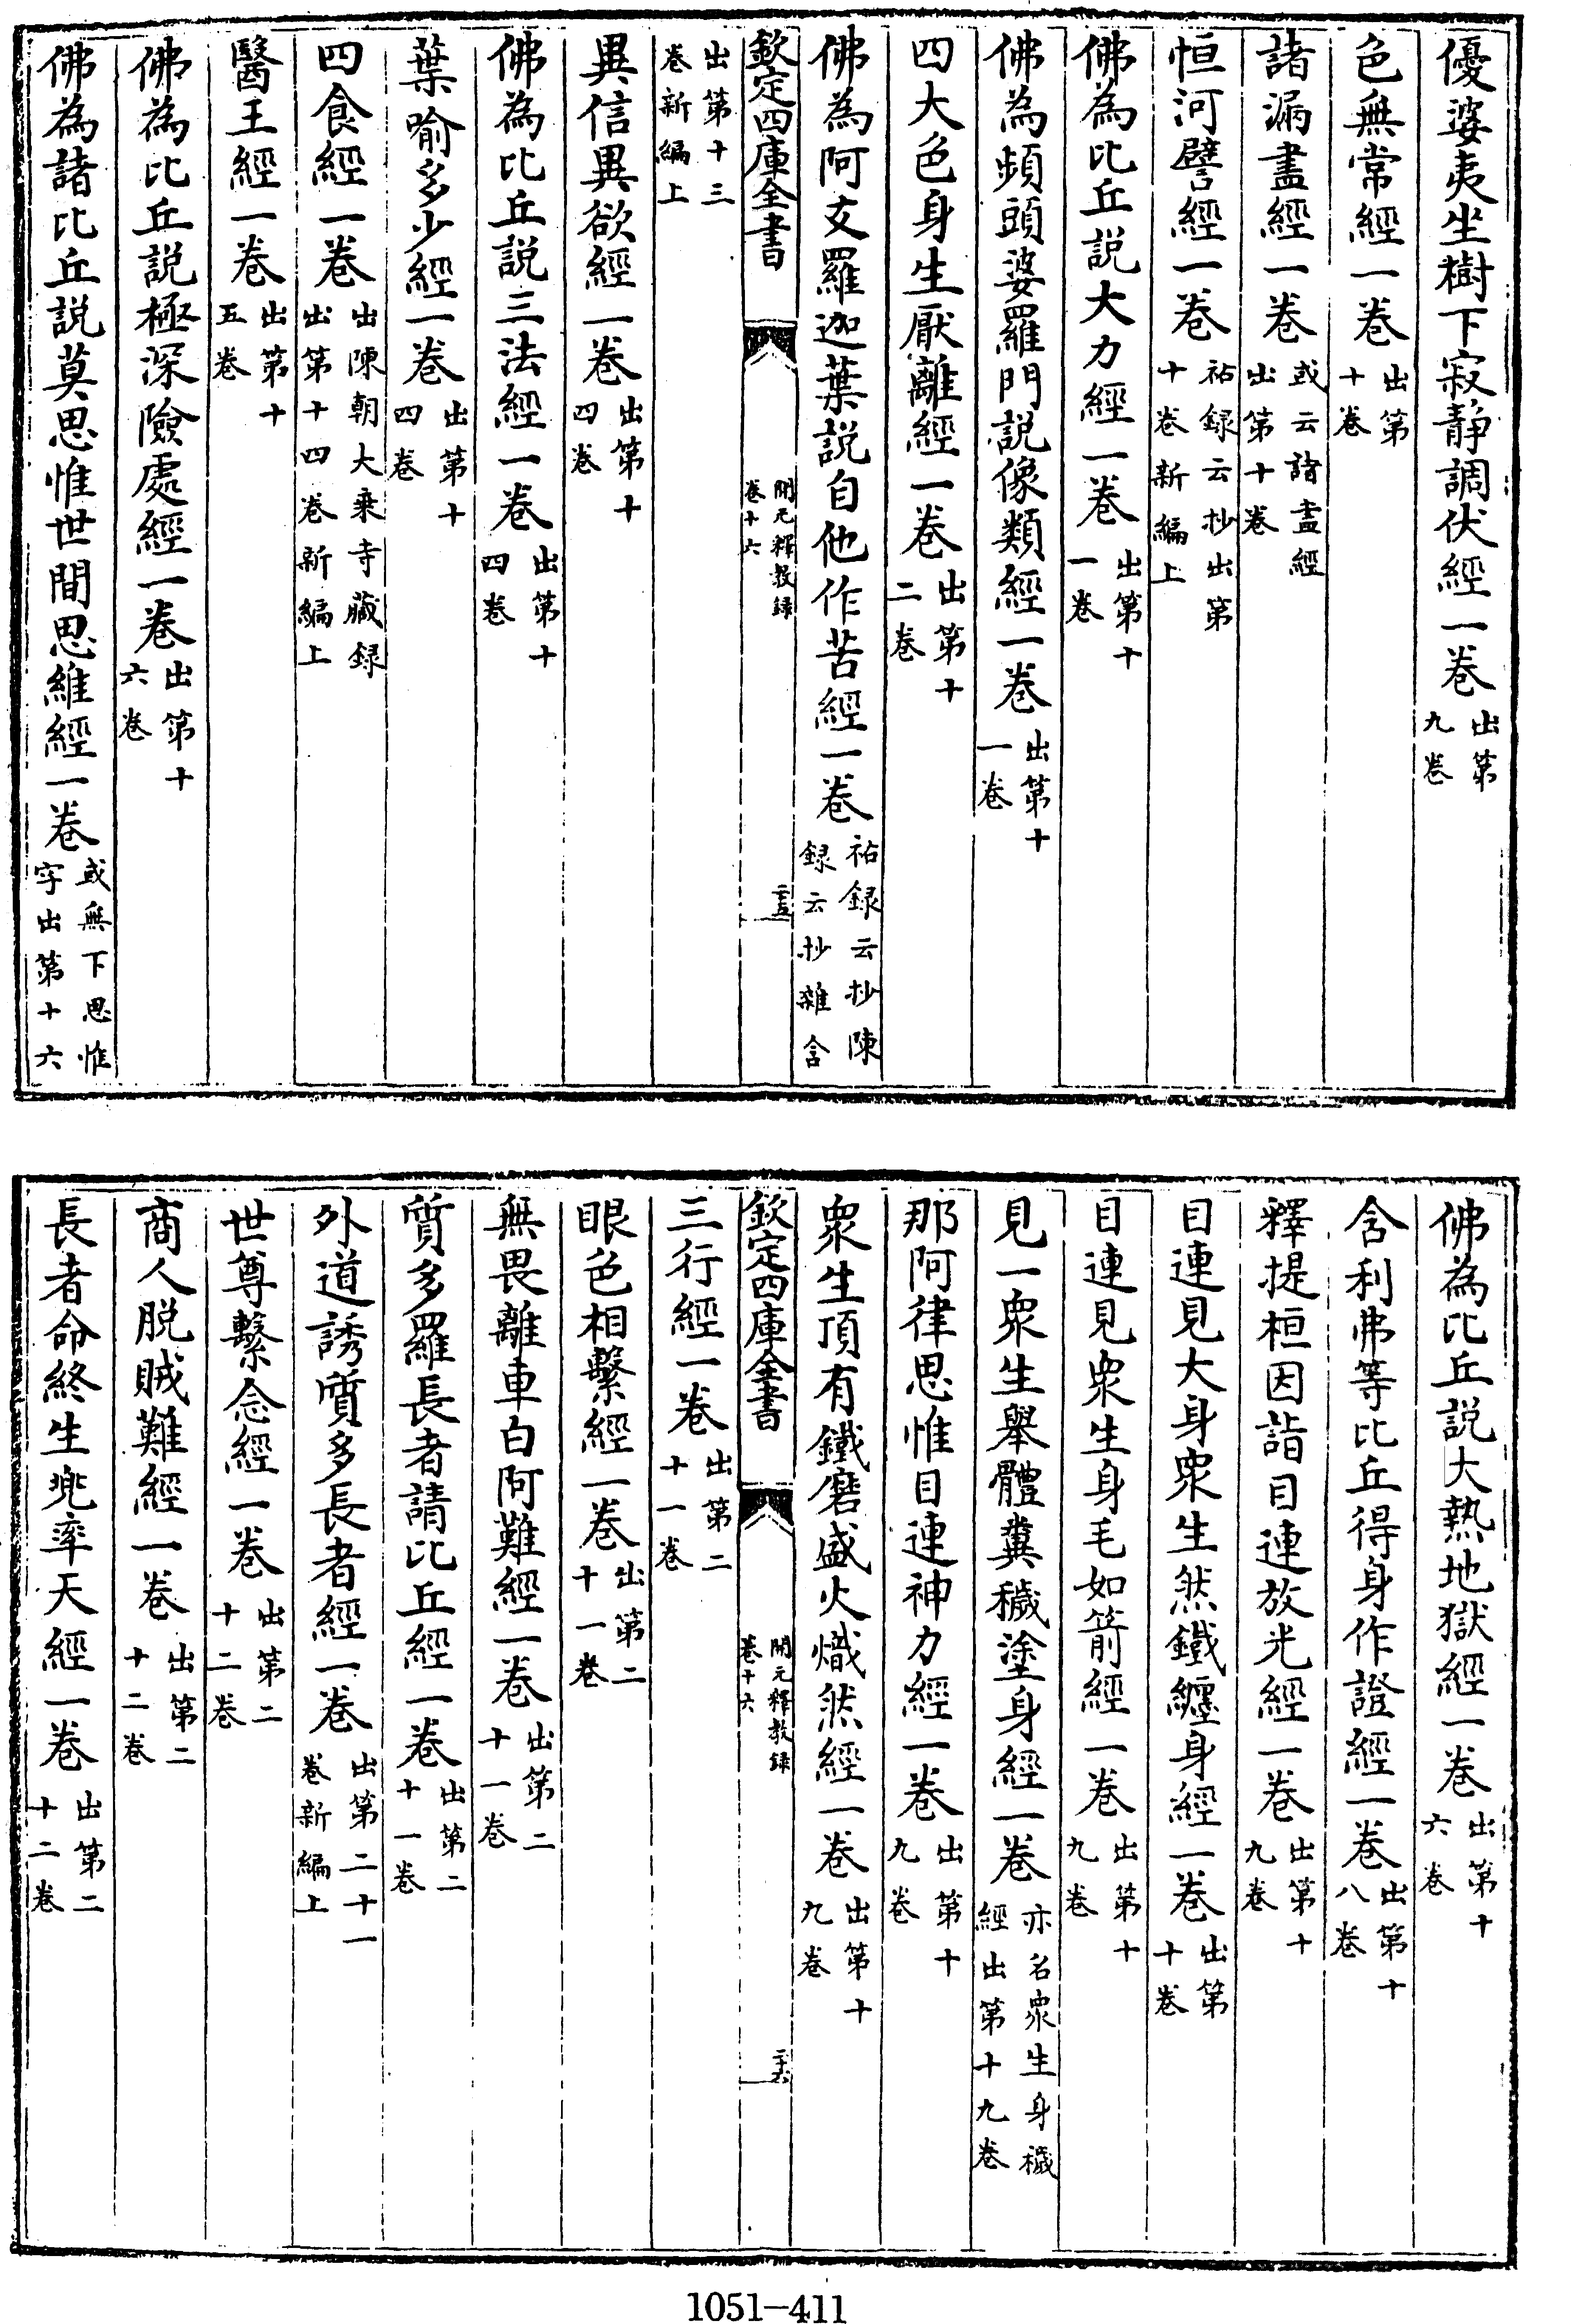 優婆夷坐樹下寂静調伏經一卷出第九卷
色無常經一卷出第十卷
諸漏盡經一卷或云諸盡經出第十卷
恒河譬經一卷祐録云抄出第十卷新編上
佛為比丘説大力經一卷出第十一卷
佛為頻頭婆羅門説像類經一卷出第十一卷
四大色身生厭離經一卷出第十二卷
佛為阿支羅迦葉説自他作苦經一卷祐録云抄陳録云抄雜含
欽定四庫全書 開元釋教録卷十六 二十五
出第十三卷新編上
異信異欲經一卷出第十四卷
佛為比丘説三法經一卷出第十四卷
葉喻多少經一卷出第十四卷
四食經一卷出陳朝大乘寺藏録出第十四卷新編上
醫王經一卷出第十五卷
佛為比丘説極深險處經一卷出第十六卷
佛為諸比丘説莫思惟世間思維經一卷或無下思惟字出第十六
佛為比丘説大熱地獄經一卷出第十六卷
舍利弗等比丘得身作證經一卷出第十八卷
釋提桓因詣目連放光經一卷出第十九卷
目連見大身衆生然鐵纏身經一卷出第十卷
目連見衆生身毛如箭經一卷出第十九卷
見一衆生舉體糞穢塗身經一卷亦名衆生身穢經出第十九卷
那阿律思惟目連神力經一卷出第十九卷
衆生頂有鐵磨盛火熾然經一卷出第十九卷
欽定四庫全書 開元釋教録卷十六 二十六
三行經一卷出第二十一卷
眼色相繫經一卷出第二十一卷
無畏離車白阿難經一卷出第二十一卷
質多羅長者請比丘經一卷出第二十一卷
外道誘質多長者經一卷出第二十一卷新編上
世尊繫念經一卷出第二十二卷
商人脱賊難經一卷出第二十二卷
長者命終生兜率天經一卷出第二十二卷
1051-411